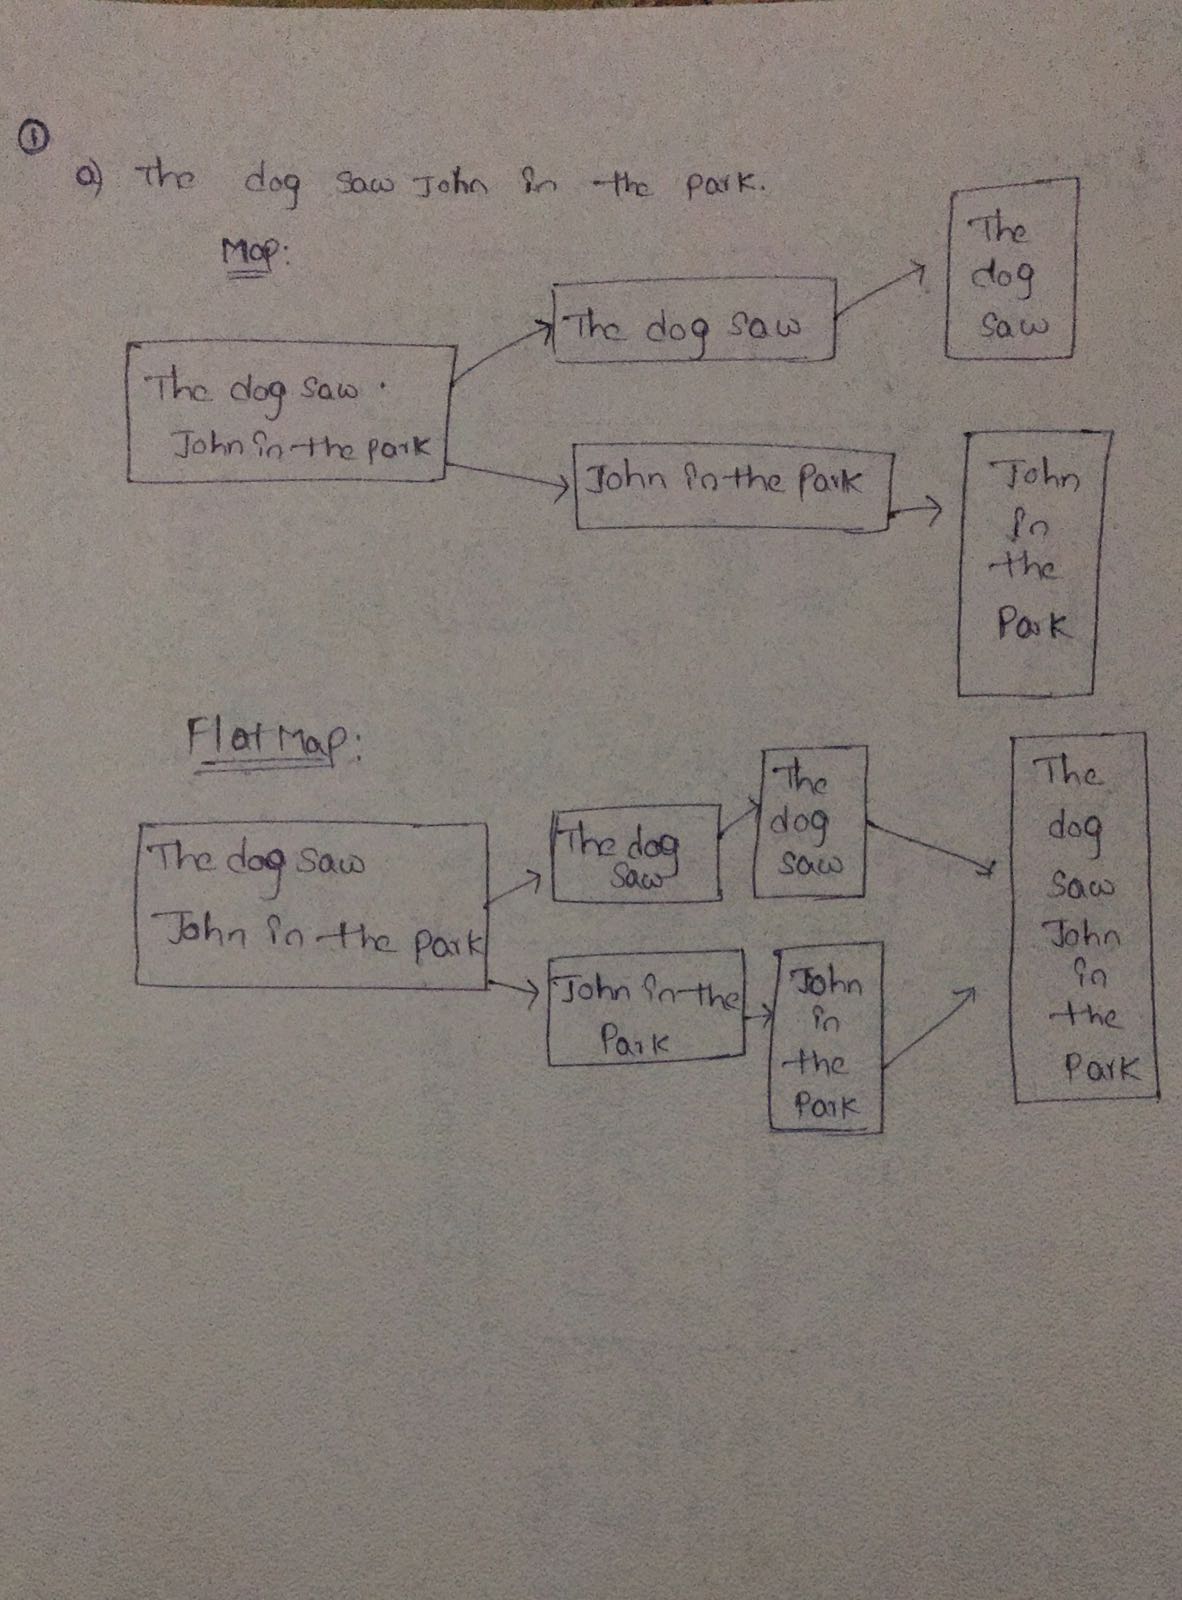 ①
a) The dog saw John in the park.
Map:
The dog saw
John in the park
The dog saw
The
dog
saw
John in the Park
John
in
the
Park
FlatMap:
The dog saw
John in the park
The dog
saw
The
dog
saw
John in the
Park
John
in
the
Park
The
dog
saw
John
in
the
Park